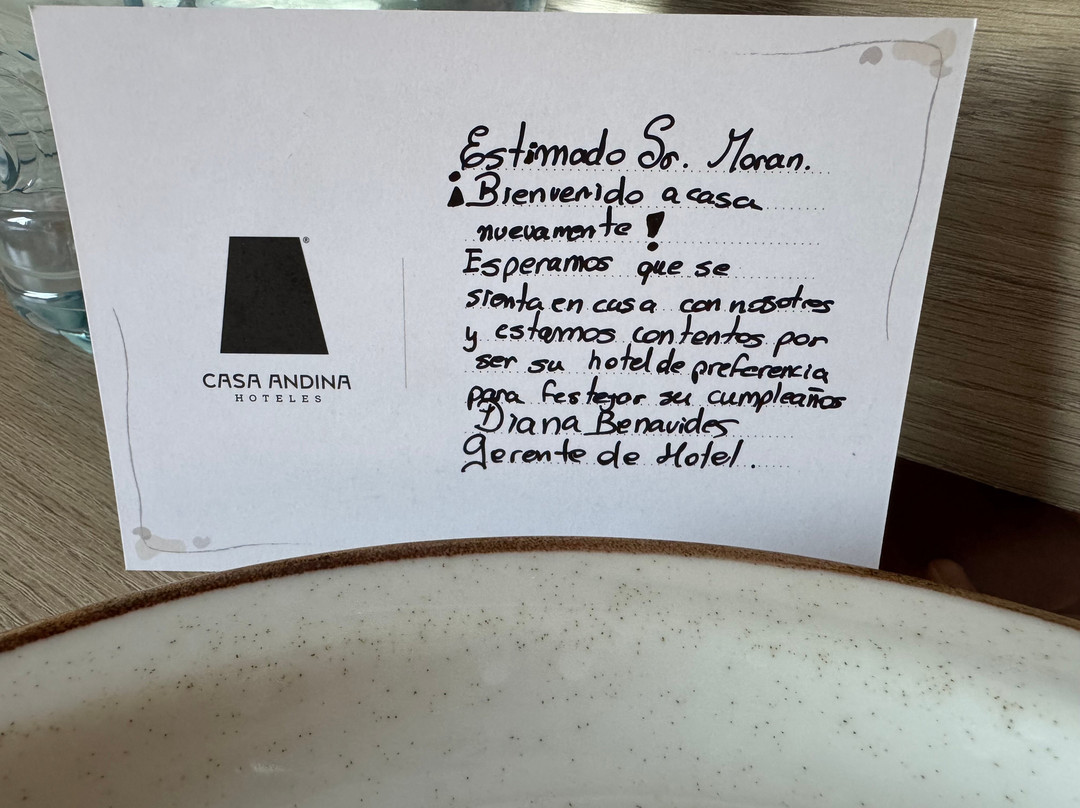 CASA ANDINA
HOTELES
Estimado Sr. Moran.
¡Bienvenido a casa
nuevamente!
Esperamos que se
sienta en casa con nosotros
y estamos contentos por
ser su hotel de preferencia
para festejar su cumpleaños
Diana Benavides
Gerente de Hotel.